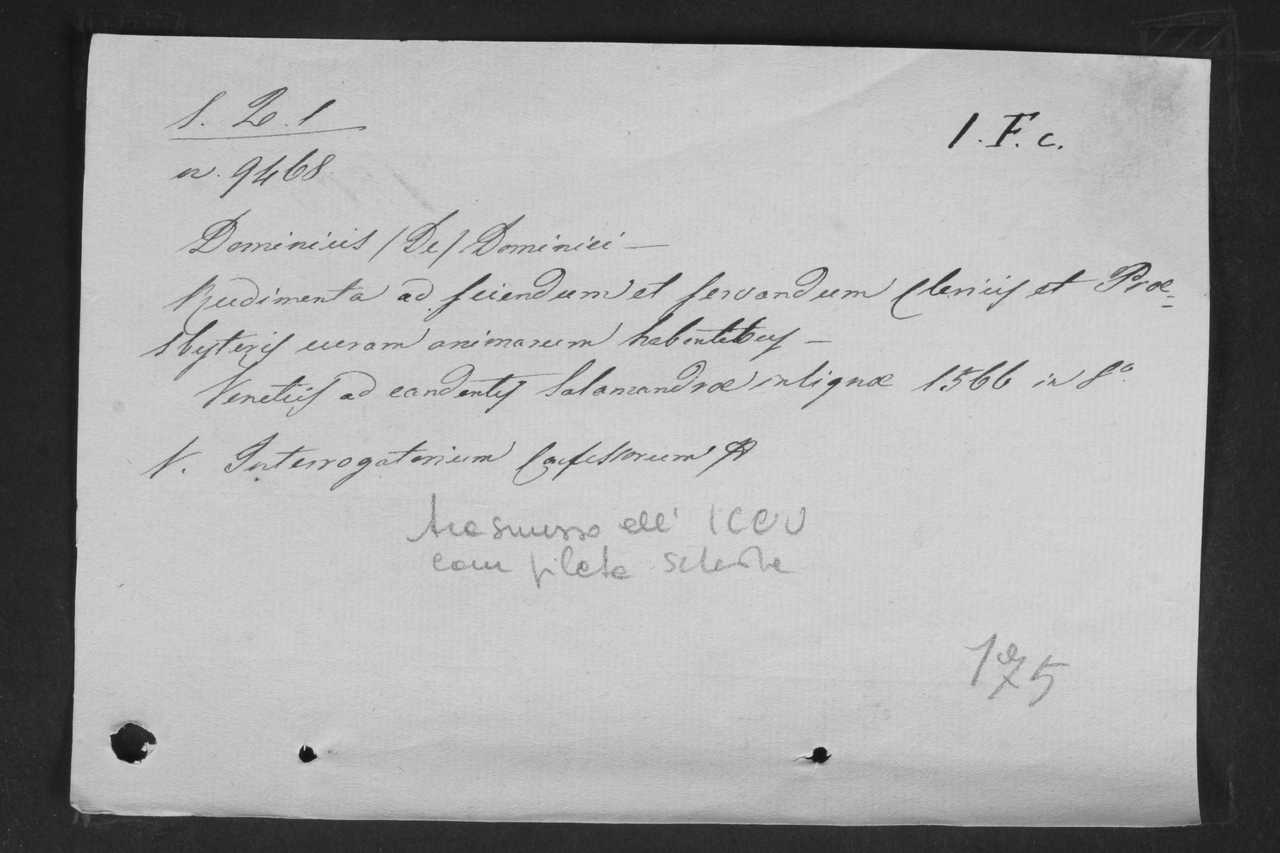 S. L. 1
1. F. c.
n. 9468
Dominicis /De/ Dominici —
Rudimenta ad sciendum et servandum Clericis et Præ=
sbyteris curam animarum habentibus —
Venetiis ad candentis Salamandræ insignæ 1566 in 8°
V. Interrogatorium Confessorum
trasmesso all' ICCU
compilata scheda
175